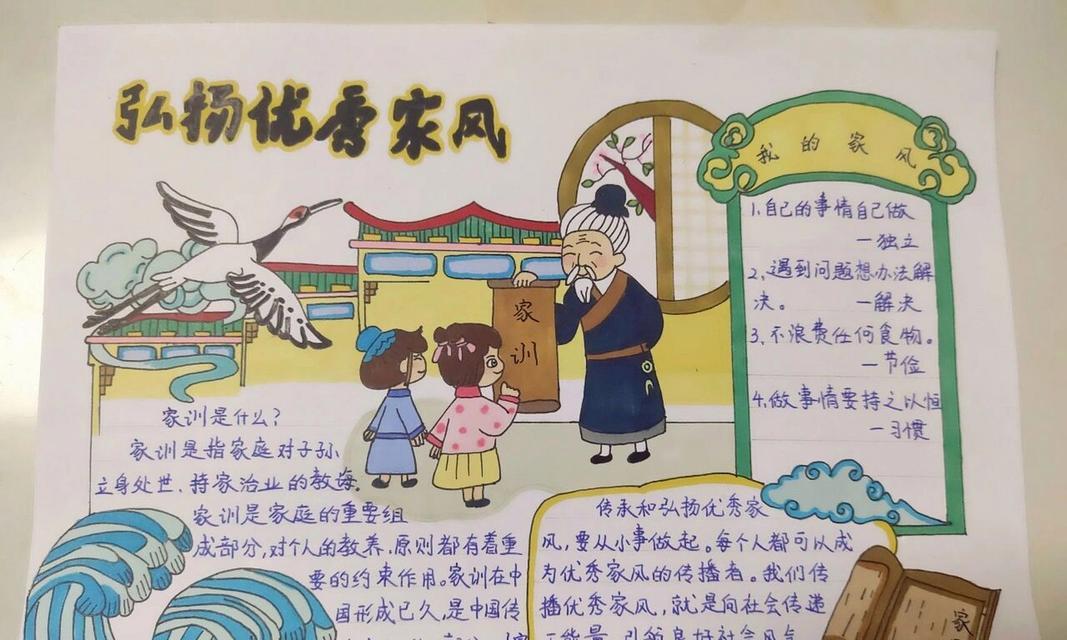 弘扬优秀家风
家
训
我的家风
1、自己的事情自己做
—独立
2、遇到问题想办法解
决。 —解决
3、不浪费任何食物。
—节俭
4、做事情要持之以恒
—习惯
家训是什么?
家训是指家庭对子孙
立身处世、持家治业的教诲。
家训是家庭的重要组
成部分,对个人的教养、原则都有着重
要的约束作用。家训在中
国形成已久,是中国传
传承和弘扬优秀家
风,要从小事做起。每个人都可以成
为优秀家风的传播者。我们传
播优秀家风,就是向社会传递
正能量,引领良好社会风气
家